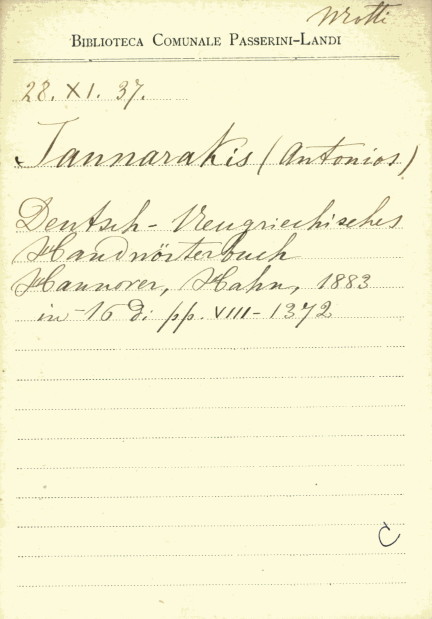 BIBLIOTECA COMUNALE PASSERINI-LANDI
28. XI. 37.
Jannarakis (Antonios)
Deutsch- Neugriechisches
Handwörterbuch
Hannover, Hahn, 1883
in 16º di pp. VIII-1372
C